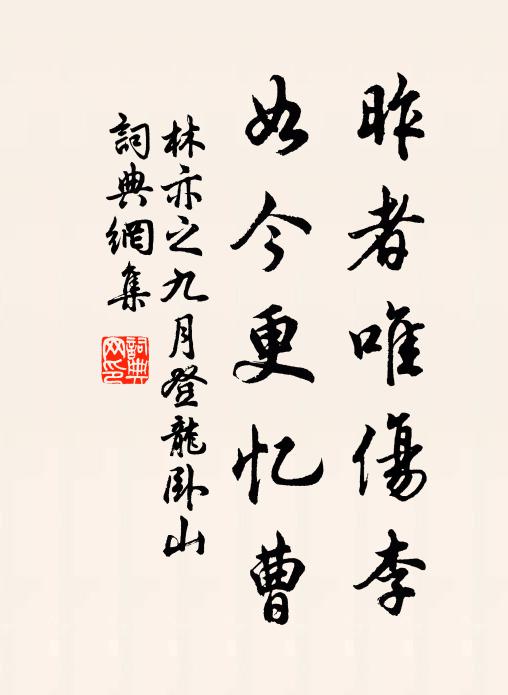 昨者唯傷李
如今更忆曹
林亦之九月登龍卧山
詞典網集
詞典
网印